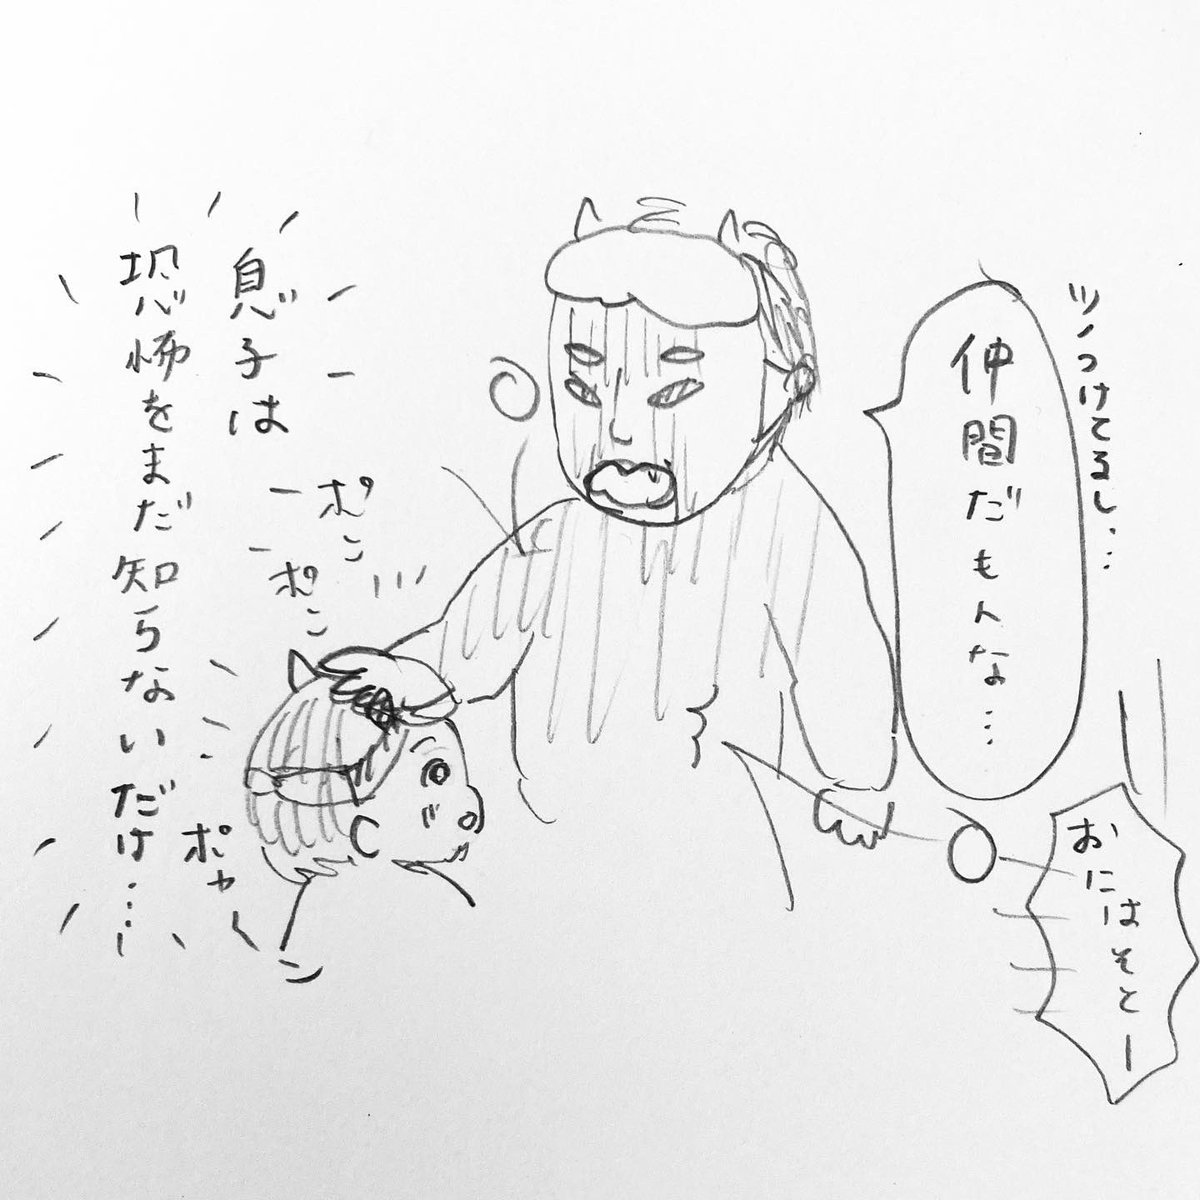 ツノつけてるし…
仲間だもんな…
おにはそとー
息子は
恐怖をまだ知らないだけ…
ポン
ポン
ポカーン